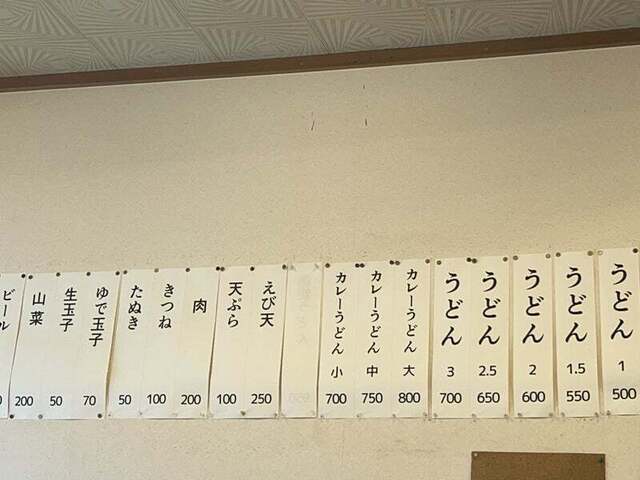 うどん 1 500
うどん 1.5 550
うどん 2 600
うどん 2.5 650
うどん 3 700
カレーうどん 大 800
カレーうどん 中 750
カレーうどん 小 700
えび天 250
天ぷら 100
肉 200
きつね 100
たぬき 50
ゆで玉子 70
生玉子 50
山菜 200
ビール